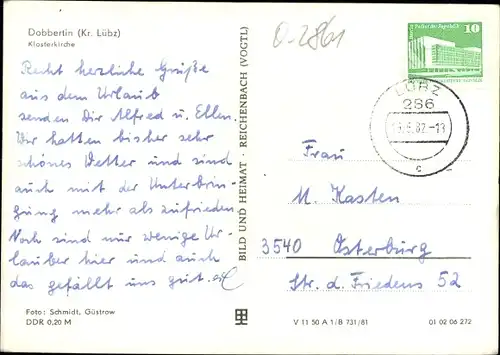 Dobbertin (Kr. Lübz)
Klosterkirche
Recht herzliche Grüße
aus dem Urlaub
senden Dir Alfred u. Ellen.
Wir hatten bisher sehr
schönes Wetter und sind
auch mit der Unterbrin-
gung mehr als zufrieden.
Noch sind nur wenige Ur-
lauber hier und auch
das gefällt uns gut.
Foto: Schmidt, Güstrow
DDR 0,20 M
BILD UND HEIMAT · REICHENBACH (VOGTL)
0-2861
10
LÜBZ
286
.82-18
c
Frau
M. Kasten
3540 Osterburg
Str. d. Friedens 52
V 11 50 A 1/B 731/81
01 02 06 272